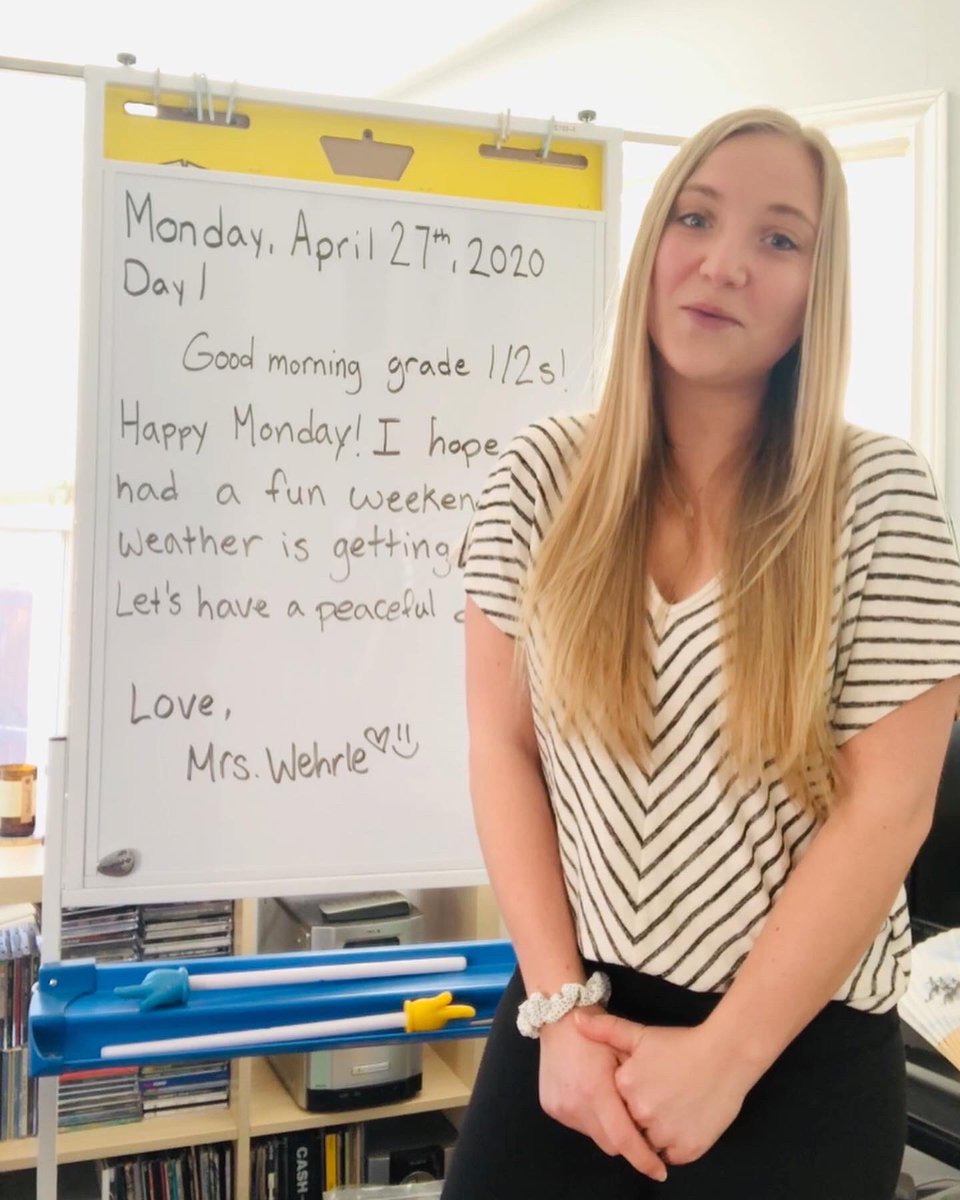 Monday, April 27th, 2020
Day 1
Good morning grade 1/2s!
Happy Monday! I hope
had a fun
weather is getting
Let's have a peaceful
Love,
Mrs. Wehrle
CASH